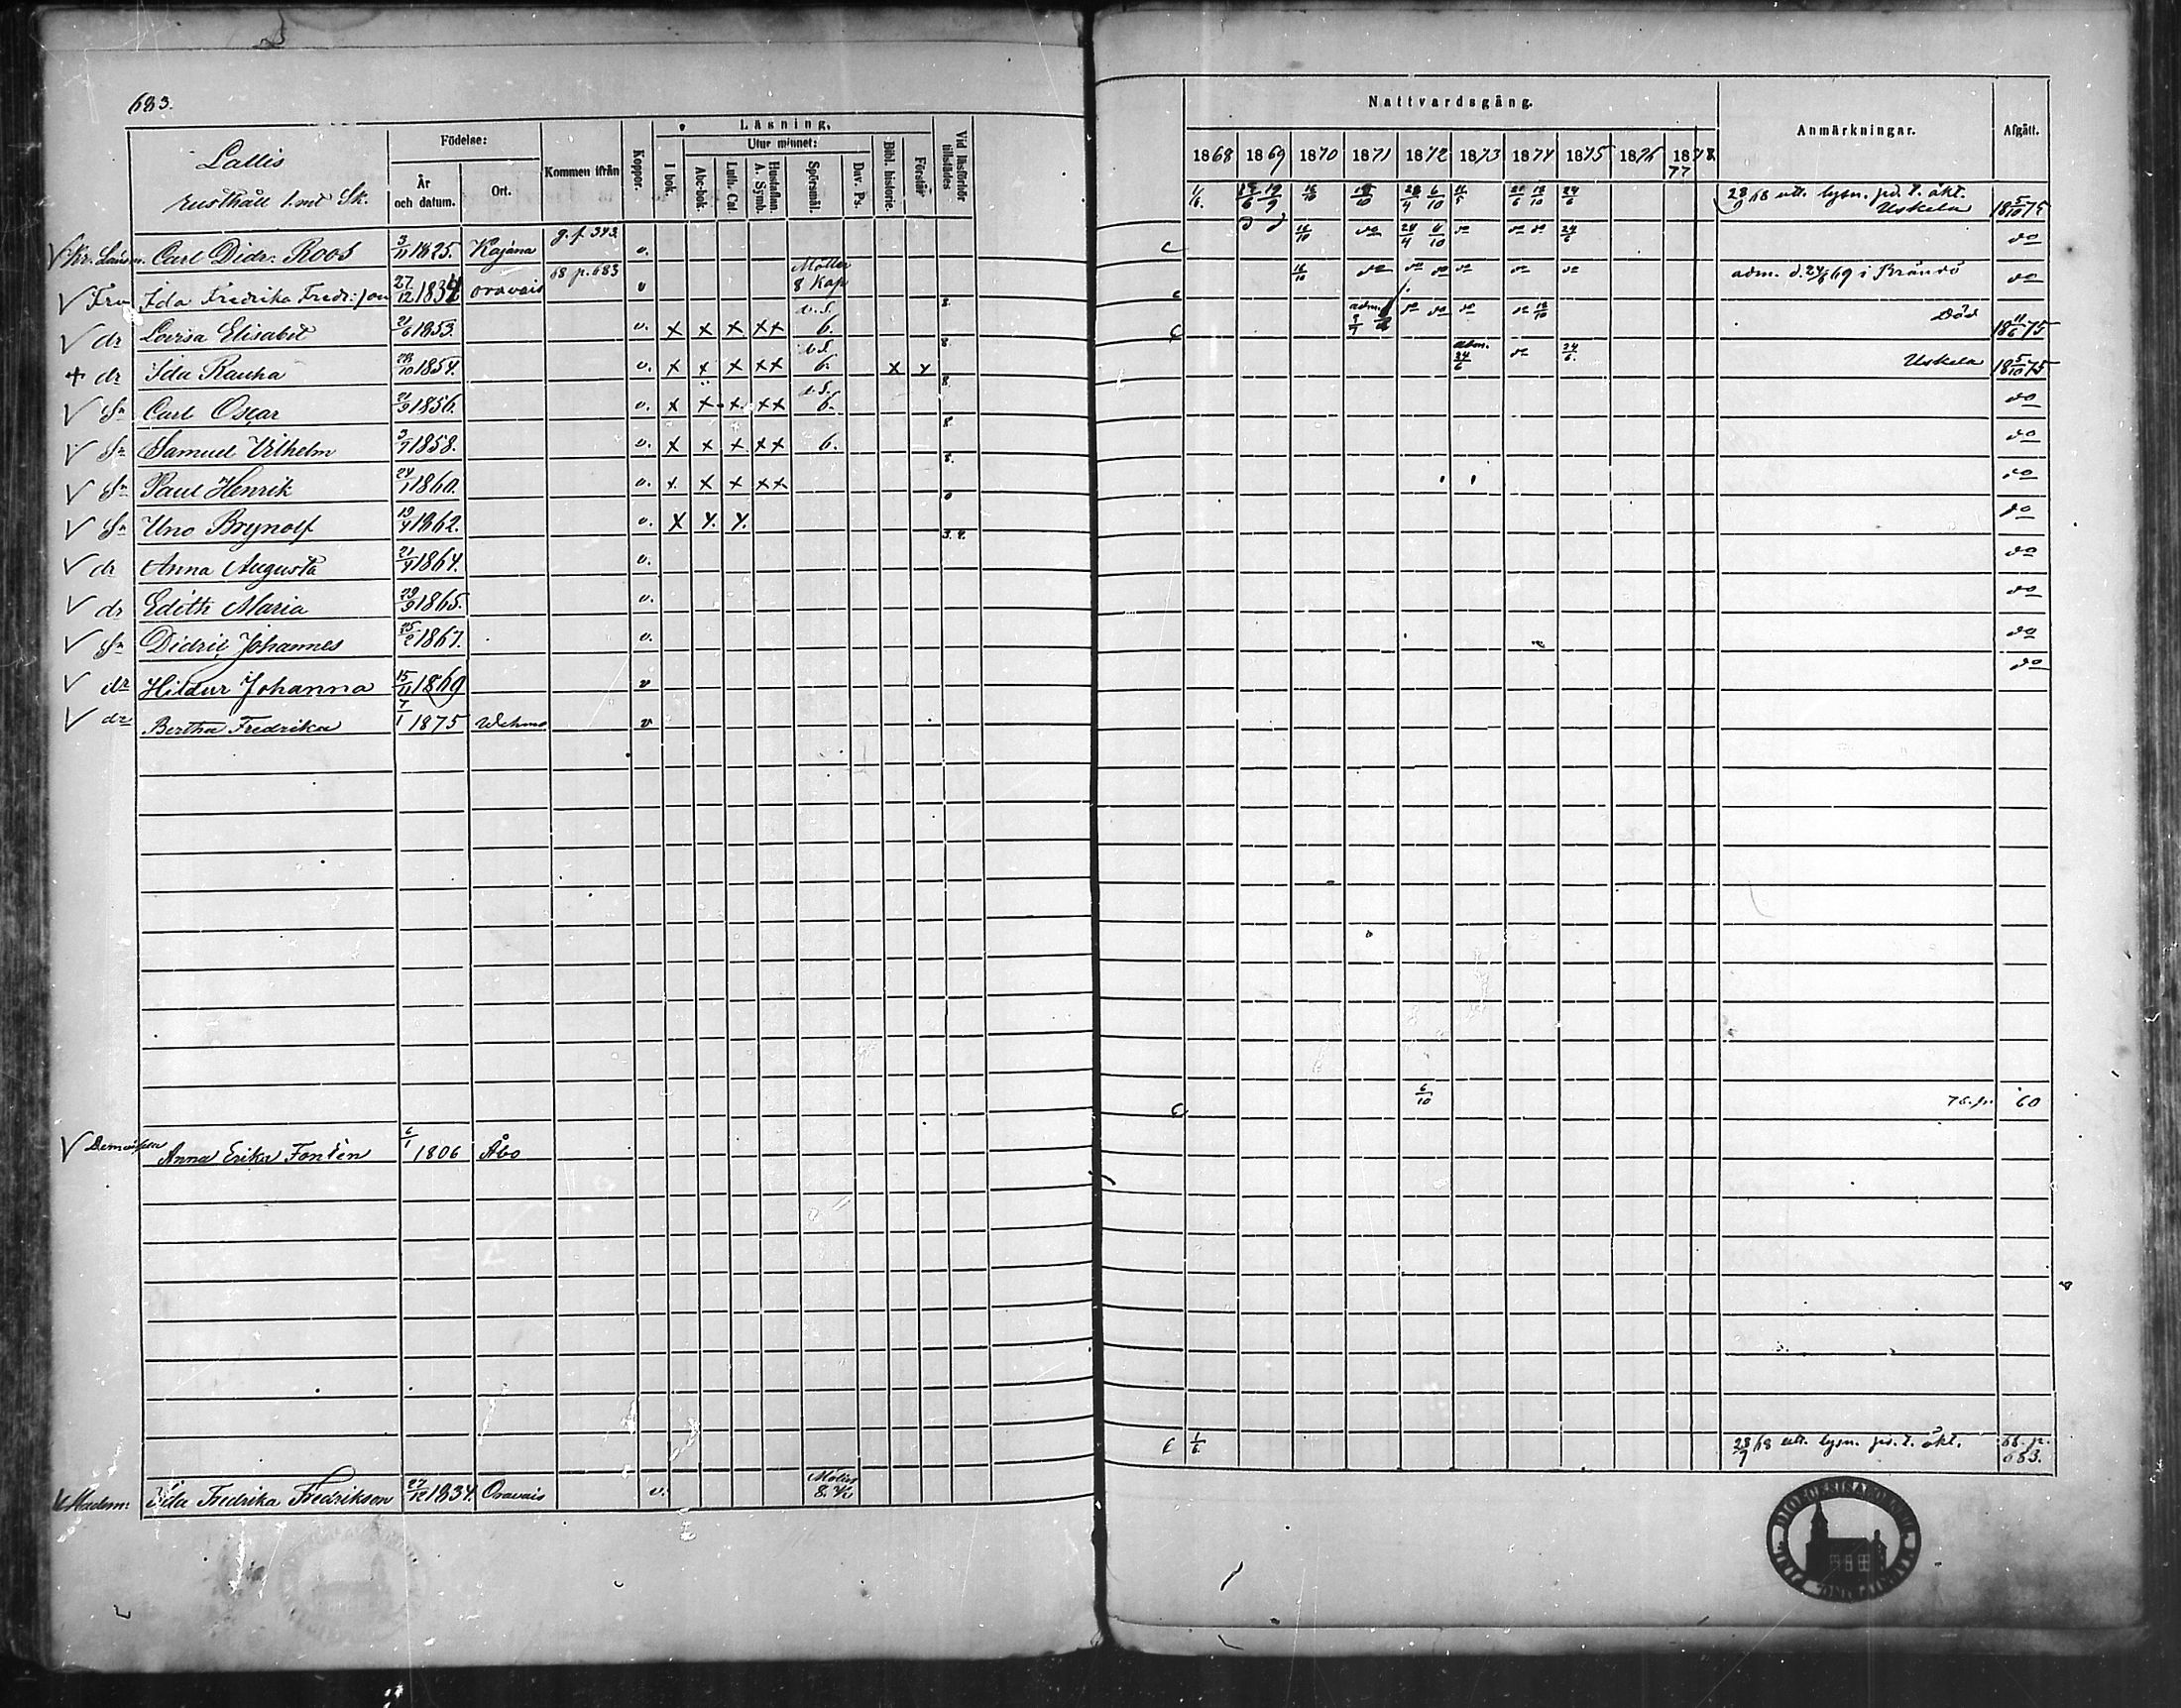 683.
Lallis
rusthåll 1 mt Sk.
Födelse:
År och datum.
Ort.
Kommen ifrån
Koppor.
Läsning.
I bok.
Utur minnet:
Abc-bok.
Luth. Cat.
Hustaflan. A. Symb.
Spörsmål.
Dav. Ps.
Bibl. historie.
Förstår
Vid läsförhör tillstädes
Nattvardsgång.
1868 1869 1870 1871 1872 1873 1874 1875 1876 1878
77
Anmärkningar.
Afgått.
V Kr. Länsm. Carl Didr. Roos 3/11 1825. Kajana g. f. 343 v.
1/6 16/10 28/4 6/10 24/6 28/9 68 utt. lysn. på t. äkt. Uskela 18 5/10 75
V Fru Ida Fredrika Fredr:son 27/12 1834 Oravais 68 p. 683 v Möller 8 Kap
c 16/10 do 24/4 6/10 do do do 24/6 do
V dr Lovisa Elisabet 21/6 1853. v. x x x xx v.S. 6. 8.
c 16/10 do do do do do do adm. d. 24/6 69 i Brändö do
+ dr Ida Rauha 28/10 1854. v. x x x xx v.S. 6. x x 8.
c adm. do do do do 18/10 Död 18 11/6 75
V Sn Carl Oscar 21/9 1856. v. x x x xx v.S. 6. 8.
adm. 24/6 do 24/6 Uskela 18 5/10 75
V Sn Samuel Vilhelm 3/7 1858. v. x x x xx 6. 8
do
V Sn Paul Henrik 24/1 1860. v. x x x xx 8.
do
V Sn Uno Brynolf 19/4 1862. v. x x x 0
do
V dr Anna Augusta 21/4 1864. v. 3.4.
do
V dr Edith Maria 29/9 1865. v.
do
V Sn Didric Johannes 25/2 1867. v.
do
V dr Hildur Johanna 15/11 1869 v
do
V dr Bertha Fredrika 7/1 1875 Wehmo v
do
V Demoisellen Anna Erika Fontén 6/1 1806 Åbo
c 6/10 60
V Madem: Ida Fredrika Fredrikson 27/12 1834. Oravais v. Möller 8.
c 1/6 28/9 68 utt. lysn. på t. äkt. 68. p. 683.